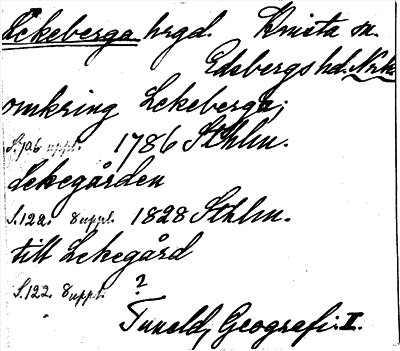 Lekeberga hrgd. Knista sn.
Edsbergs hd. Nrke
omkring Lekeberga;
S. 706 uppl. 1786 Sthlm.
Lekegården
S. 122. 8 uppl. 1828 Sthlm.
till Lekegård
S. 122. 8 uppl. ?
Tuneld, Geografi. I.